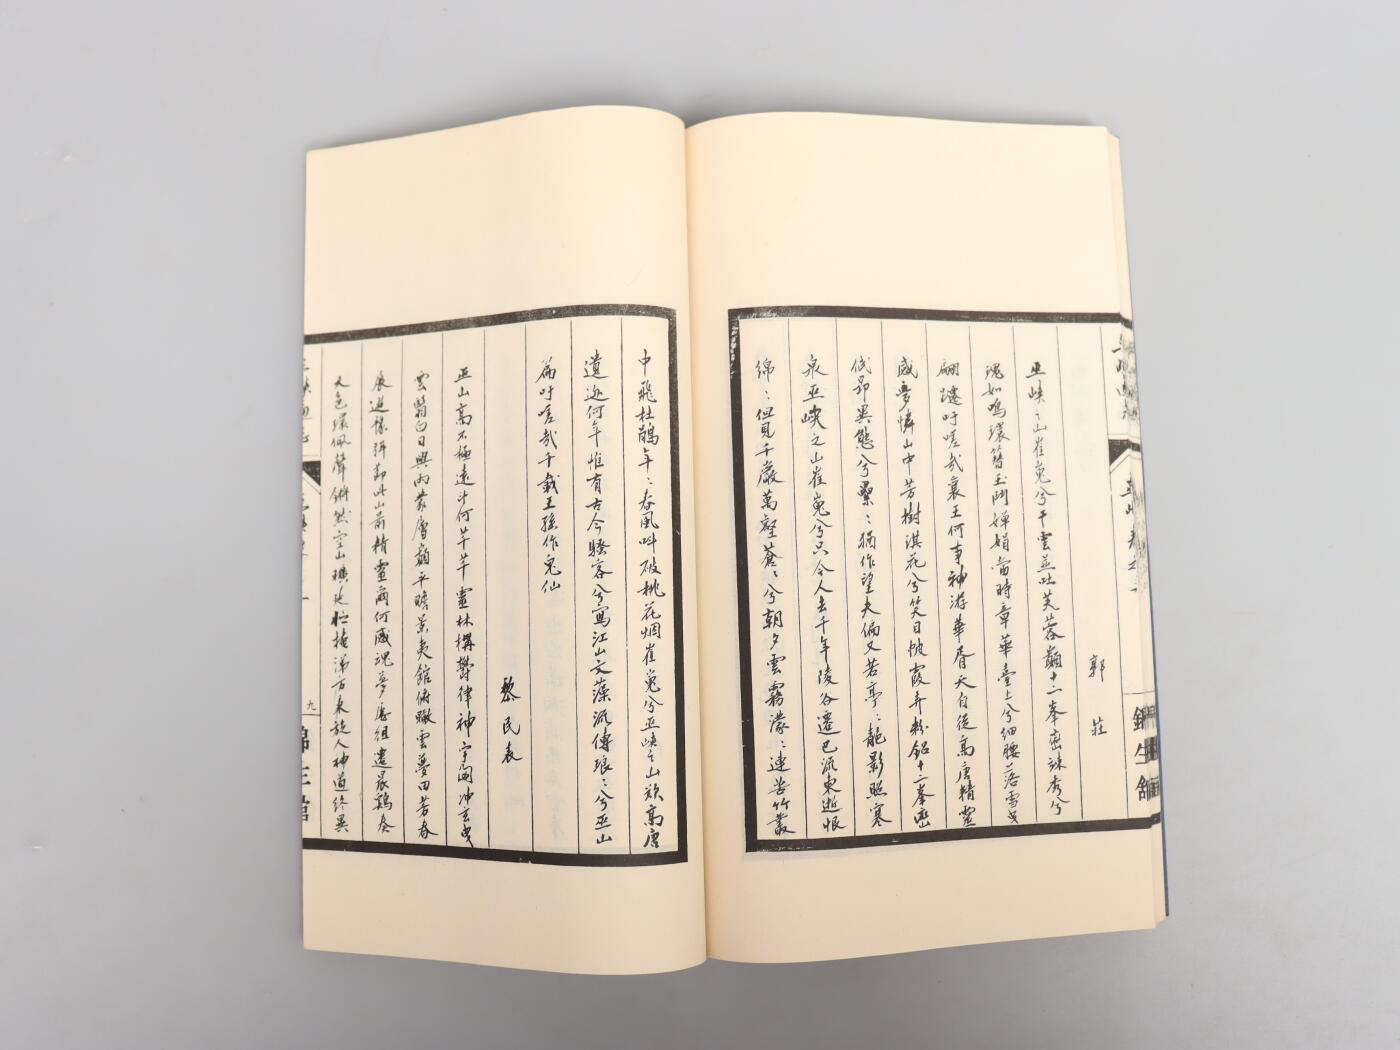 郭 莊
巫峽之山崔嵬兮干雲並吐芙蓉巔十二峯密誅秀兮
瑰如鳴環簪玉鬥嬋娟當時章華臺上兮細腰落雪曳
翩躚吁嗟哉襄王何事神游華胥天自從高唐精靈
感夢憐山中芳樹淇花兮笑日帔霞弄粉鉛十二峯密
低昂異態兮纍：猶作望夫偏又若亭：艷影照寒
泉巫峽之山崔嵬兮只今人去千年陵谷遷巳流東逝恨
綿：但見千巖萬壑蒼：兮朝夕雲霧濛：連苦竹叢
中飛杜鵑年：春風叫破桃花烟崔嵬兮巫峽之山頌高唐
遺迹何年惟有古今騷客兮寫江山文藻流傳琅：兮巫山
篇吁嗟哉千載王孫作鬼仙
黎民表
巫山高不極遠岸何芊芊靈林構鬱律神宇閟冲玄曳
雲翳白日興雨蒙層巔平瞻景夷館俯瞰雲夢田若春
展遊豫弭節此山前精靈爾何感魂夢忽徂遷晨鷄奏
天色環佩聲鏘然空山曠
旅人神道終異
九
錦生館